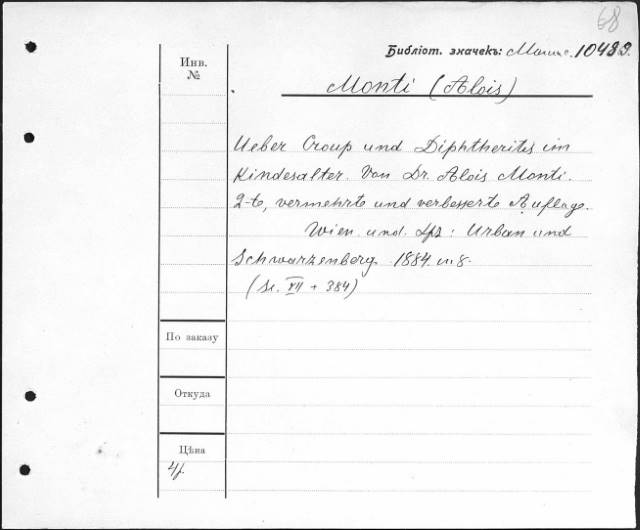 68
Библіот. значекъ: 10433.
Инв.
№
Monti (Alois)
Ueber Croup und Diphtheritis im
Kindesalter. Von Dr. Alois Monti.
2-te, vermehrte und verbesserte Auflage.
Wien und. Lpz: Urban und
Schwarzenberg. 1884. in 8.
(Se. XII + 384)
По заказу
Откуда
Цѣна
4/.